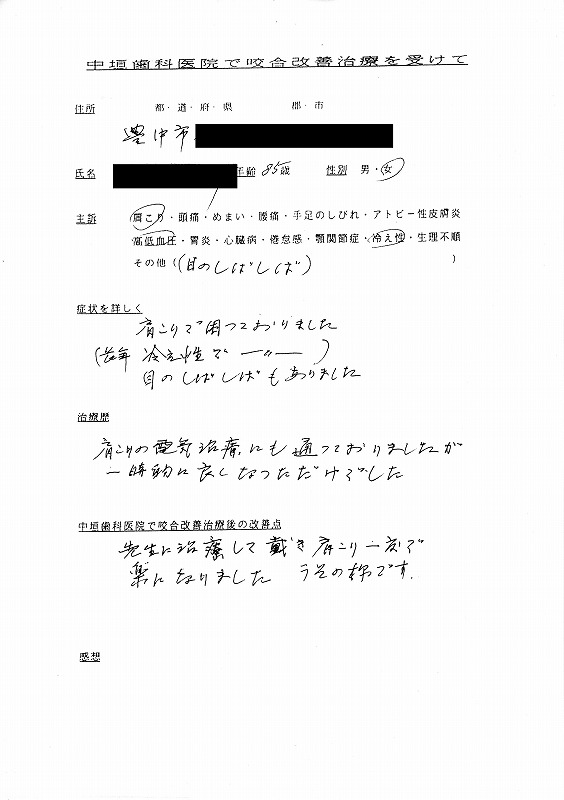 中垣歯科医院で咬合改善治療を受けて
住所 都・道・府・県 郡・市
豊中市
氏名 年齢 85歳 性別 男・女
主訴 肩こり・頭痛・めまい・腰痛・手足のしびれ・アトピー性皮膚炎
高低血圧・胃炎・心臓病・倦怠感・顎関節症・冷え性・生理不順
その他（(目のしばしば) ）
症状を詳しく
肩こりで困っておりました
(長年 冷え性で 〃 )
目のしばしばもありました
治療歴
肩こりの電気治療にも通っておりましたが
一時的に良くなっただけでした
中垣歯科医院で咬合改善治療後の改善点
先生に治療して戴き肩こり一度で
楽になりました うその様です.
感想